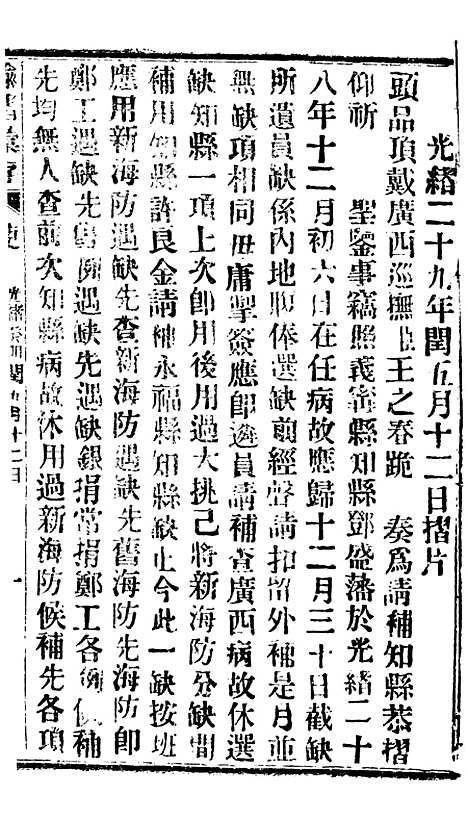 光緒二十九年閏五月十二日摺片
頭品頂戴廣西巡撫臣王之春跪　奏爲請補知縣恭摺
仰祈　聖鑒事竊照義寧縣知縣鄧盛藩於光緒二十
八年十二月初六日在任病故應歸十二月三十日截缺
所遺員缺係內地腹俸選缺前經聲請扣留外補是月並
無缺項相同毋庸掣簽應即遴員請補查廣西病故休選
缺知縣一項上次即用後用過大挑已將新海防分缺間
補用知縣許良金請補永福縣知縣缺止今此一缺按班
應用新海防遇缺先查新海防遇缺先舊海防先海防即
鄭工遇缺先舊例遇缺先遇缺銀捐常捐鄭工各例候補
先均無人查前次知縣病故休用過新海防候補先各項
閏五月十二日
一